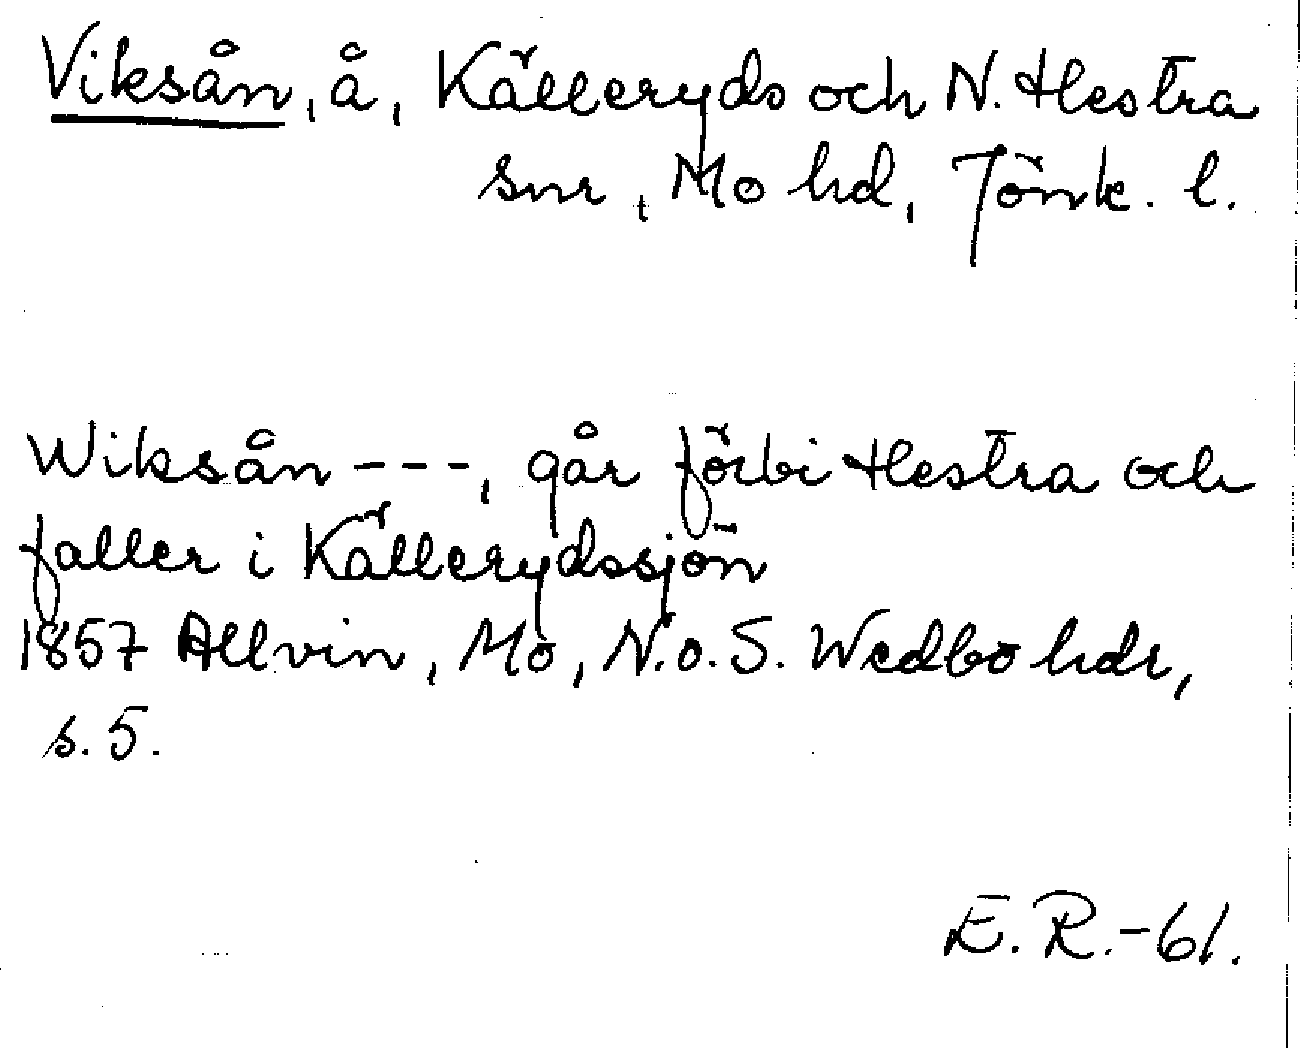 Viksån, å, Källeryds och N. Hestra
snr, Mo hd, Jönk. l.
Wiksån ---, går förbi Hestra och
faller i Källerydssjön
1857 Allvin, Mo, N.o.S. Wedbo hdr,
s. 5.
E.R.-61.